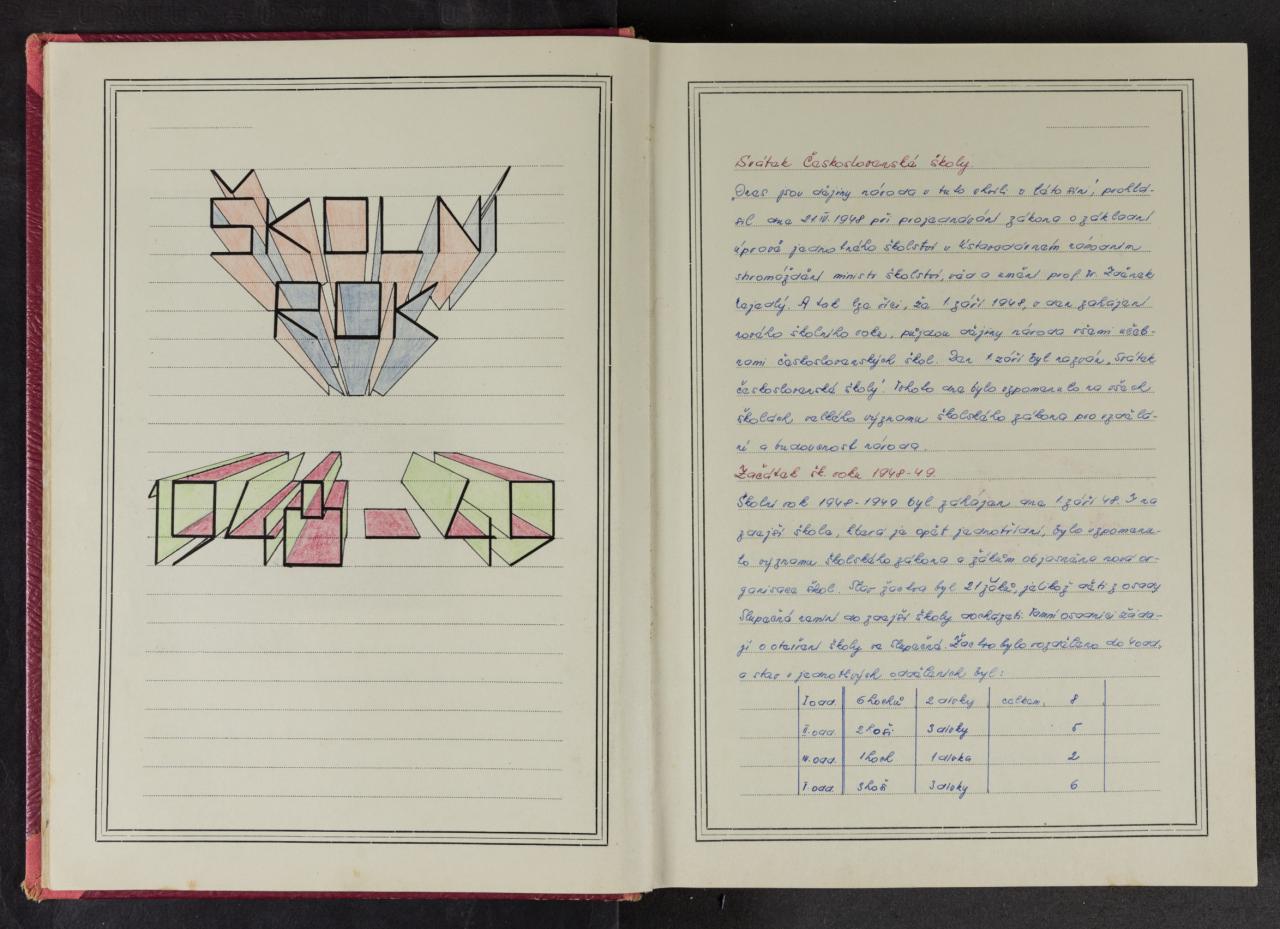 ŠKOLNÍ
ROK
1948-49
Svátek Československé školy.
„Dnes jsou dějiny národa v tuto chvíli v této síni", prohlá-
sil dne 21.IV.1948 při projednávání zákona o základní
úpravě jednotného školství v Ústavodárném národním
shromáždění ministr školství, věd a umění prof. Dr. Zdeněk
Nejedlý. A tak lze říci, že 1. září 1948, v den zahájení
nového školního roku, půjdou dějiny národa všemi učeb-
nami československých škol. Den 1. září byl nazván „Svátek
československé školy". Tohoto dne bylo vzpomenuto na všech
školách velkého významu školského zákona pro vzdělá-
ní a budoucnost národa.
Začátek šk. roku 1948-49.
Školní rok 1948-1949 byl zahájen dne 1. září 48. I na
zdejší škole, která je opět jednotřídní, bylo vzpomenu-
to významu školského zákona a žákům objasněna nová or-
ganisace škol. Stav žactva byl 21 žáků, jelikož děti z osady
Slupečná nemíní do zdejší školy docházeti. Tamní osadníci žáda-
jí o otevření školy ve Slupečné. Žactvo bylo rozděleno do 4 odd.
a stav v jednotlivých odděleních byl:
I. odd. 6 hochů 2 dívky celkem 8
II. odd. 2 hoši 3 dívky 5
odd. 1 hoch 1 dívka 2
odd. 3 hoši 3 dívky 6